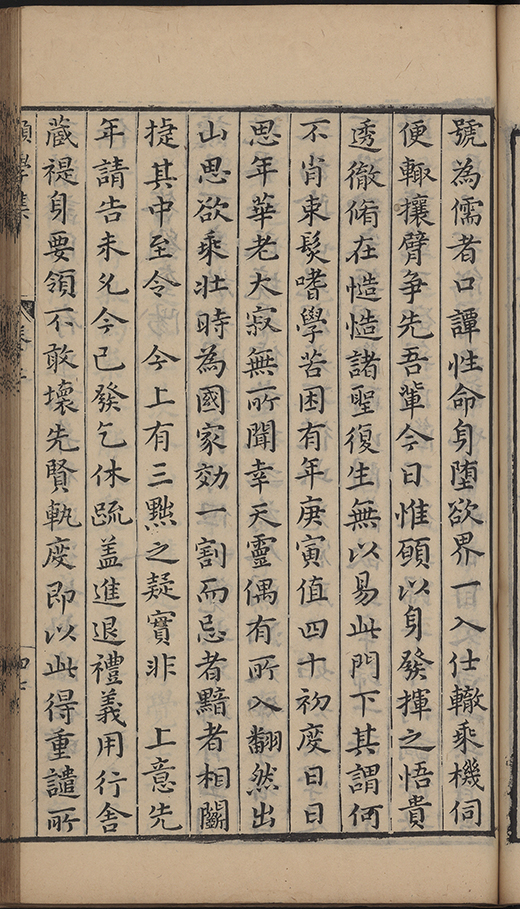 號為儒者口譚性命身堕欲界一入仕轍乘機伺
便輙攘臂争先吾輩今日惟願以身發揮之悟貴
透徹脩在慥慥諸聖復生無以易此門下其謂何
不肖束髮嗜學苦困有年庚寅值四十初度日日
思年華老大寂無所聞幸天靈偶有所入翻然出
山思欲乘壮時為國家効一割而忌者黯者相闘
㨗其中至令　今上有三黙之疑實非　上意先
年請告未允今已發乞休疏盖進退禮義用行舍
藏禔身要領不敢壞先賢軌度即以此得重譴所
學集
卷